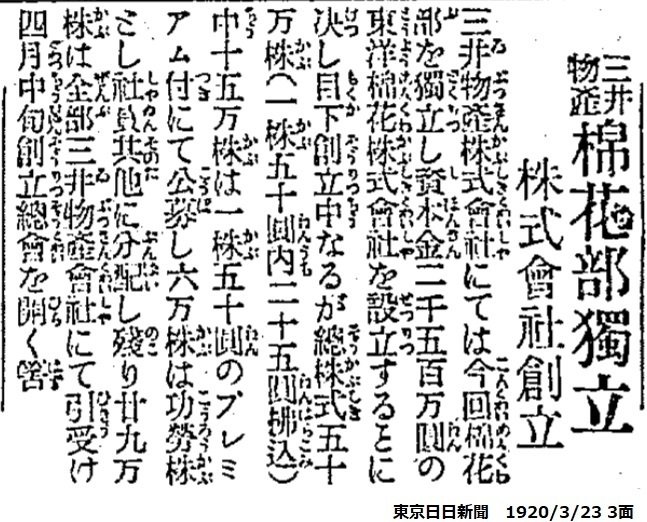 三井
物產
棉花部獨立
株式會社創立
三井物產株式會社にては今回棉花
部を獨立し資本金二千五百万圓の
東洋棉花株式會社を設立することに
決し目下創立中なるが總株式五十
万株(一株五十圓内二十五圓拂込)
中十五万株は一株五十圓のプレミ
アム付にて公募し六万株は功勞株
とし社員其他に分配し殘り廿九万
株は全部三井物產會社にて引受け
四月中旬創立總會を開く筈
東京日日新聞 1920/3/23 3面